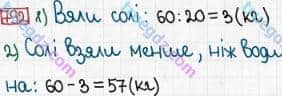 792 1) Взяли солі: 60:20=3(кг)
2) Солі взяли менше, ніж води
на: 60-3=57(кг)